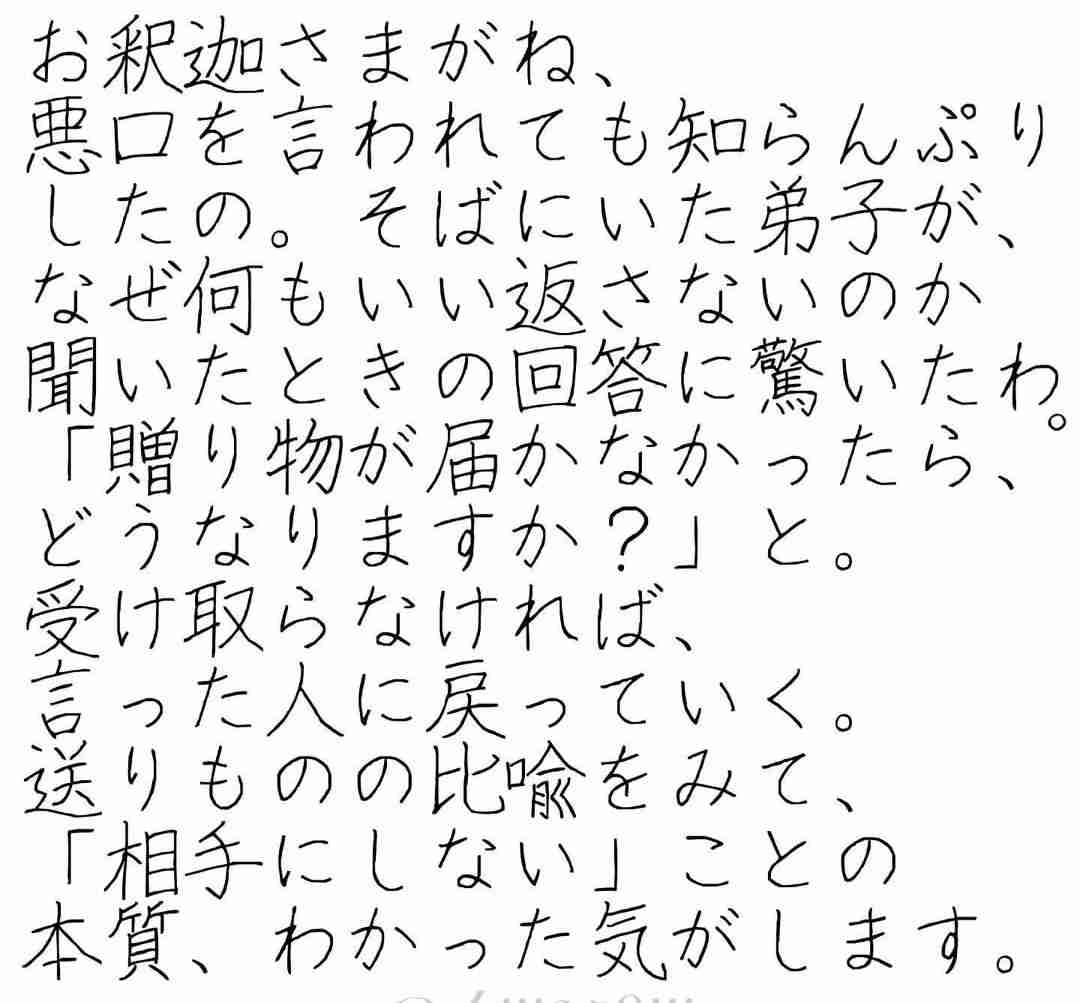 お釈迦さまがね、
悪口を言われても知らんぷり
したの。そばにいた弟子が、
なぜ何もいい返さないのか
聞いたときの回答に驚いたわ。
「贈り物が届かなかったら、
どうなりますか?」と。
受け取らなければ、
言った人に戻っていく。
送りものの比喩をみて、
「相手にしない」ことの
本質、わかった気がします。